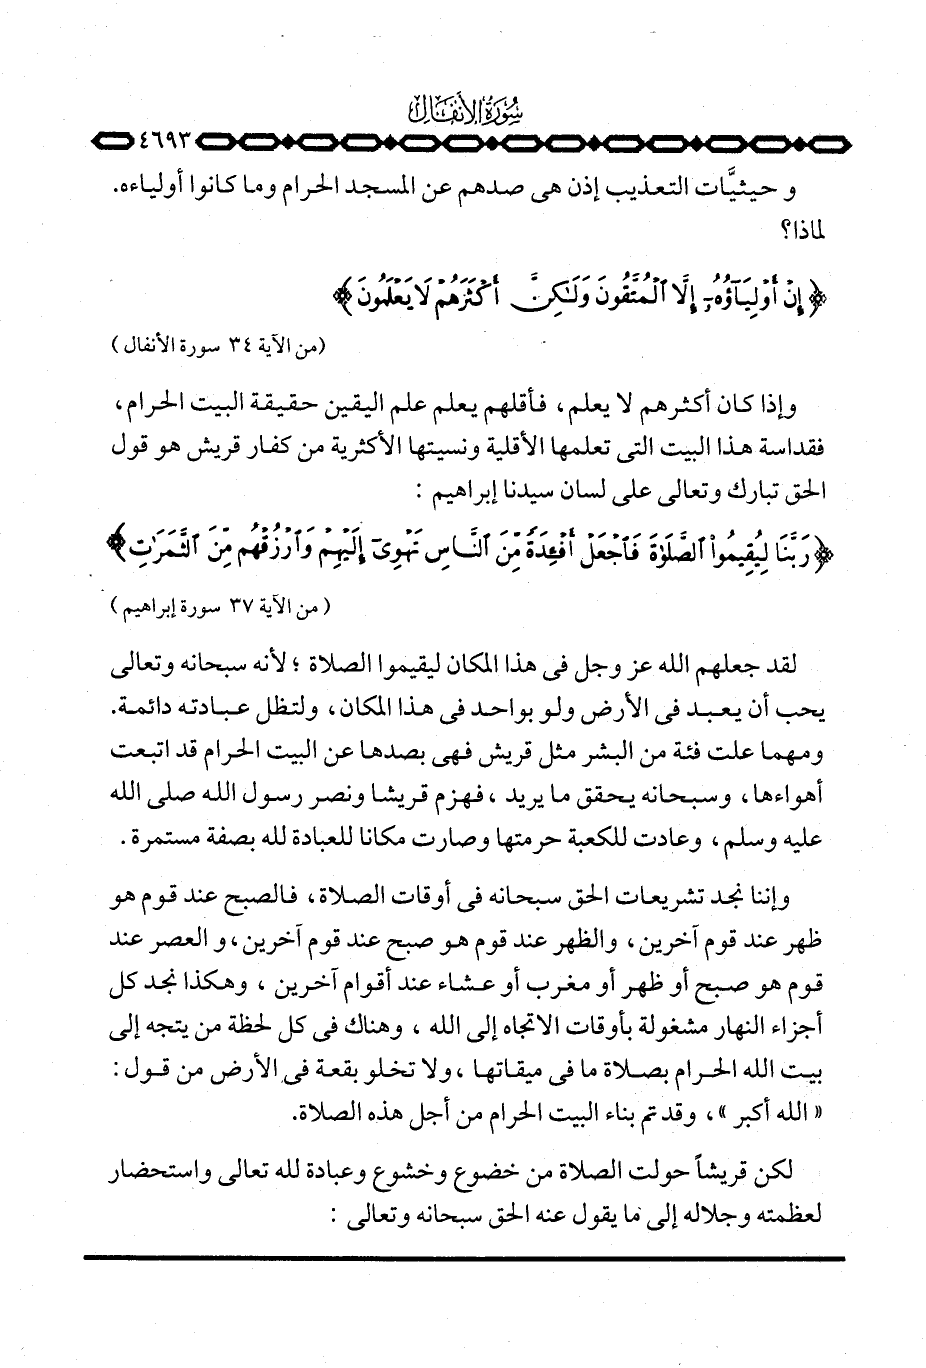 سورة الأنفال
٤٦٩٣
و حيثيَّات التعذيب إذن هى صدهم عن المسجد الحرام وما كانوا أولياءه.
لماذا؟
﴿ إِنْ أَوْلِيَآؤُهُۥٓ إِلَّا ٱلْمُتَّقُونَ وَلَـٰكِنَّ أَكْثَرَهُمْ لَا يَعْلَمُونَ ﴾
(من الآية ٣٤ سورة الأنفال)
وإذا كان أكثرهم لا يعلم، فأقلهم يعلم علم اليقين حقيقة البيت الحرام،
فقداسة هذا البيت التى تعلمها الأقلية ونسيتها الأكثرية من كفار قريش هو قول
الحق تبارك وتعالى على لسان سيدنا إبراهيم :
﴿ رَبَّنَا لِيُقِيمُوا۟ ٱلصَّلَوٰةَ فَٱجْعَلْ أَفْـِٔدَةً مِّنَ ٱلنَّاسِ تَهْوِىٓ إِلَيْهِمْ وَٱرْزُقْهُم مِّنَ ٱلثَّمَرَٰتِ ﴾
(من الآية ٣٧ سورة إبراهيم)
لقد جعلهم الله عز وجل فى هذا المكان ليقيموا الصلاة ؛ لأنه سبحانه وتعالى
يحب أن يعبد فى الأرض ولو بواحد فى هذا المكان، ولتظل عبادته دائمة.
ومهما علت فئة من البشر مثل قريش فهى بصدها عن البيت الحرام قد اتبعت
أهواءها، وسبحانه يحقق ما يريد ، فهزم قريشا ونصر رسول الله صلى الله
عليه وسلم، وعادت للكعبة حرمتها وصارت مكانا للعبادة لله بصفة مستمرة .
وإننا نجد تشريعات الحق سبحانه فى أوقات الصلاة، فالصبح عند قوم هو
ظهر عند قوم آخرين، والظهر عند قوم هو صبح عند قوم آخرين، و العصر عند
قوم هو صبح أو ظهر أو مغرب أو عشاء عند أقوام آخرين ، وهكذا نجد كل
أجزاء النهار مشغولة بأوقات الاتجاه إلى الله ، وهناك فى كل لحظة من يتجه إلى
بيت الله الحرام بصلاة ما فى ميقاتها ، ولا تخلو بقعة فى الأرض من قول :
« الله أكبر »، وقد تم بناء البيت الحرام من أجل هذه الصلاة.
لكن قريشاً حولت الصلاة من خضوع وخشوع وعبادة لله تعالى واستحضار
لعظمته وجلاله إلى ما يقول عنه الحق سبحانه وتعالى :